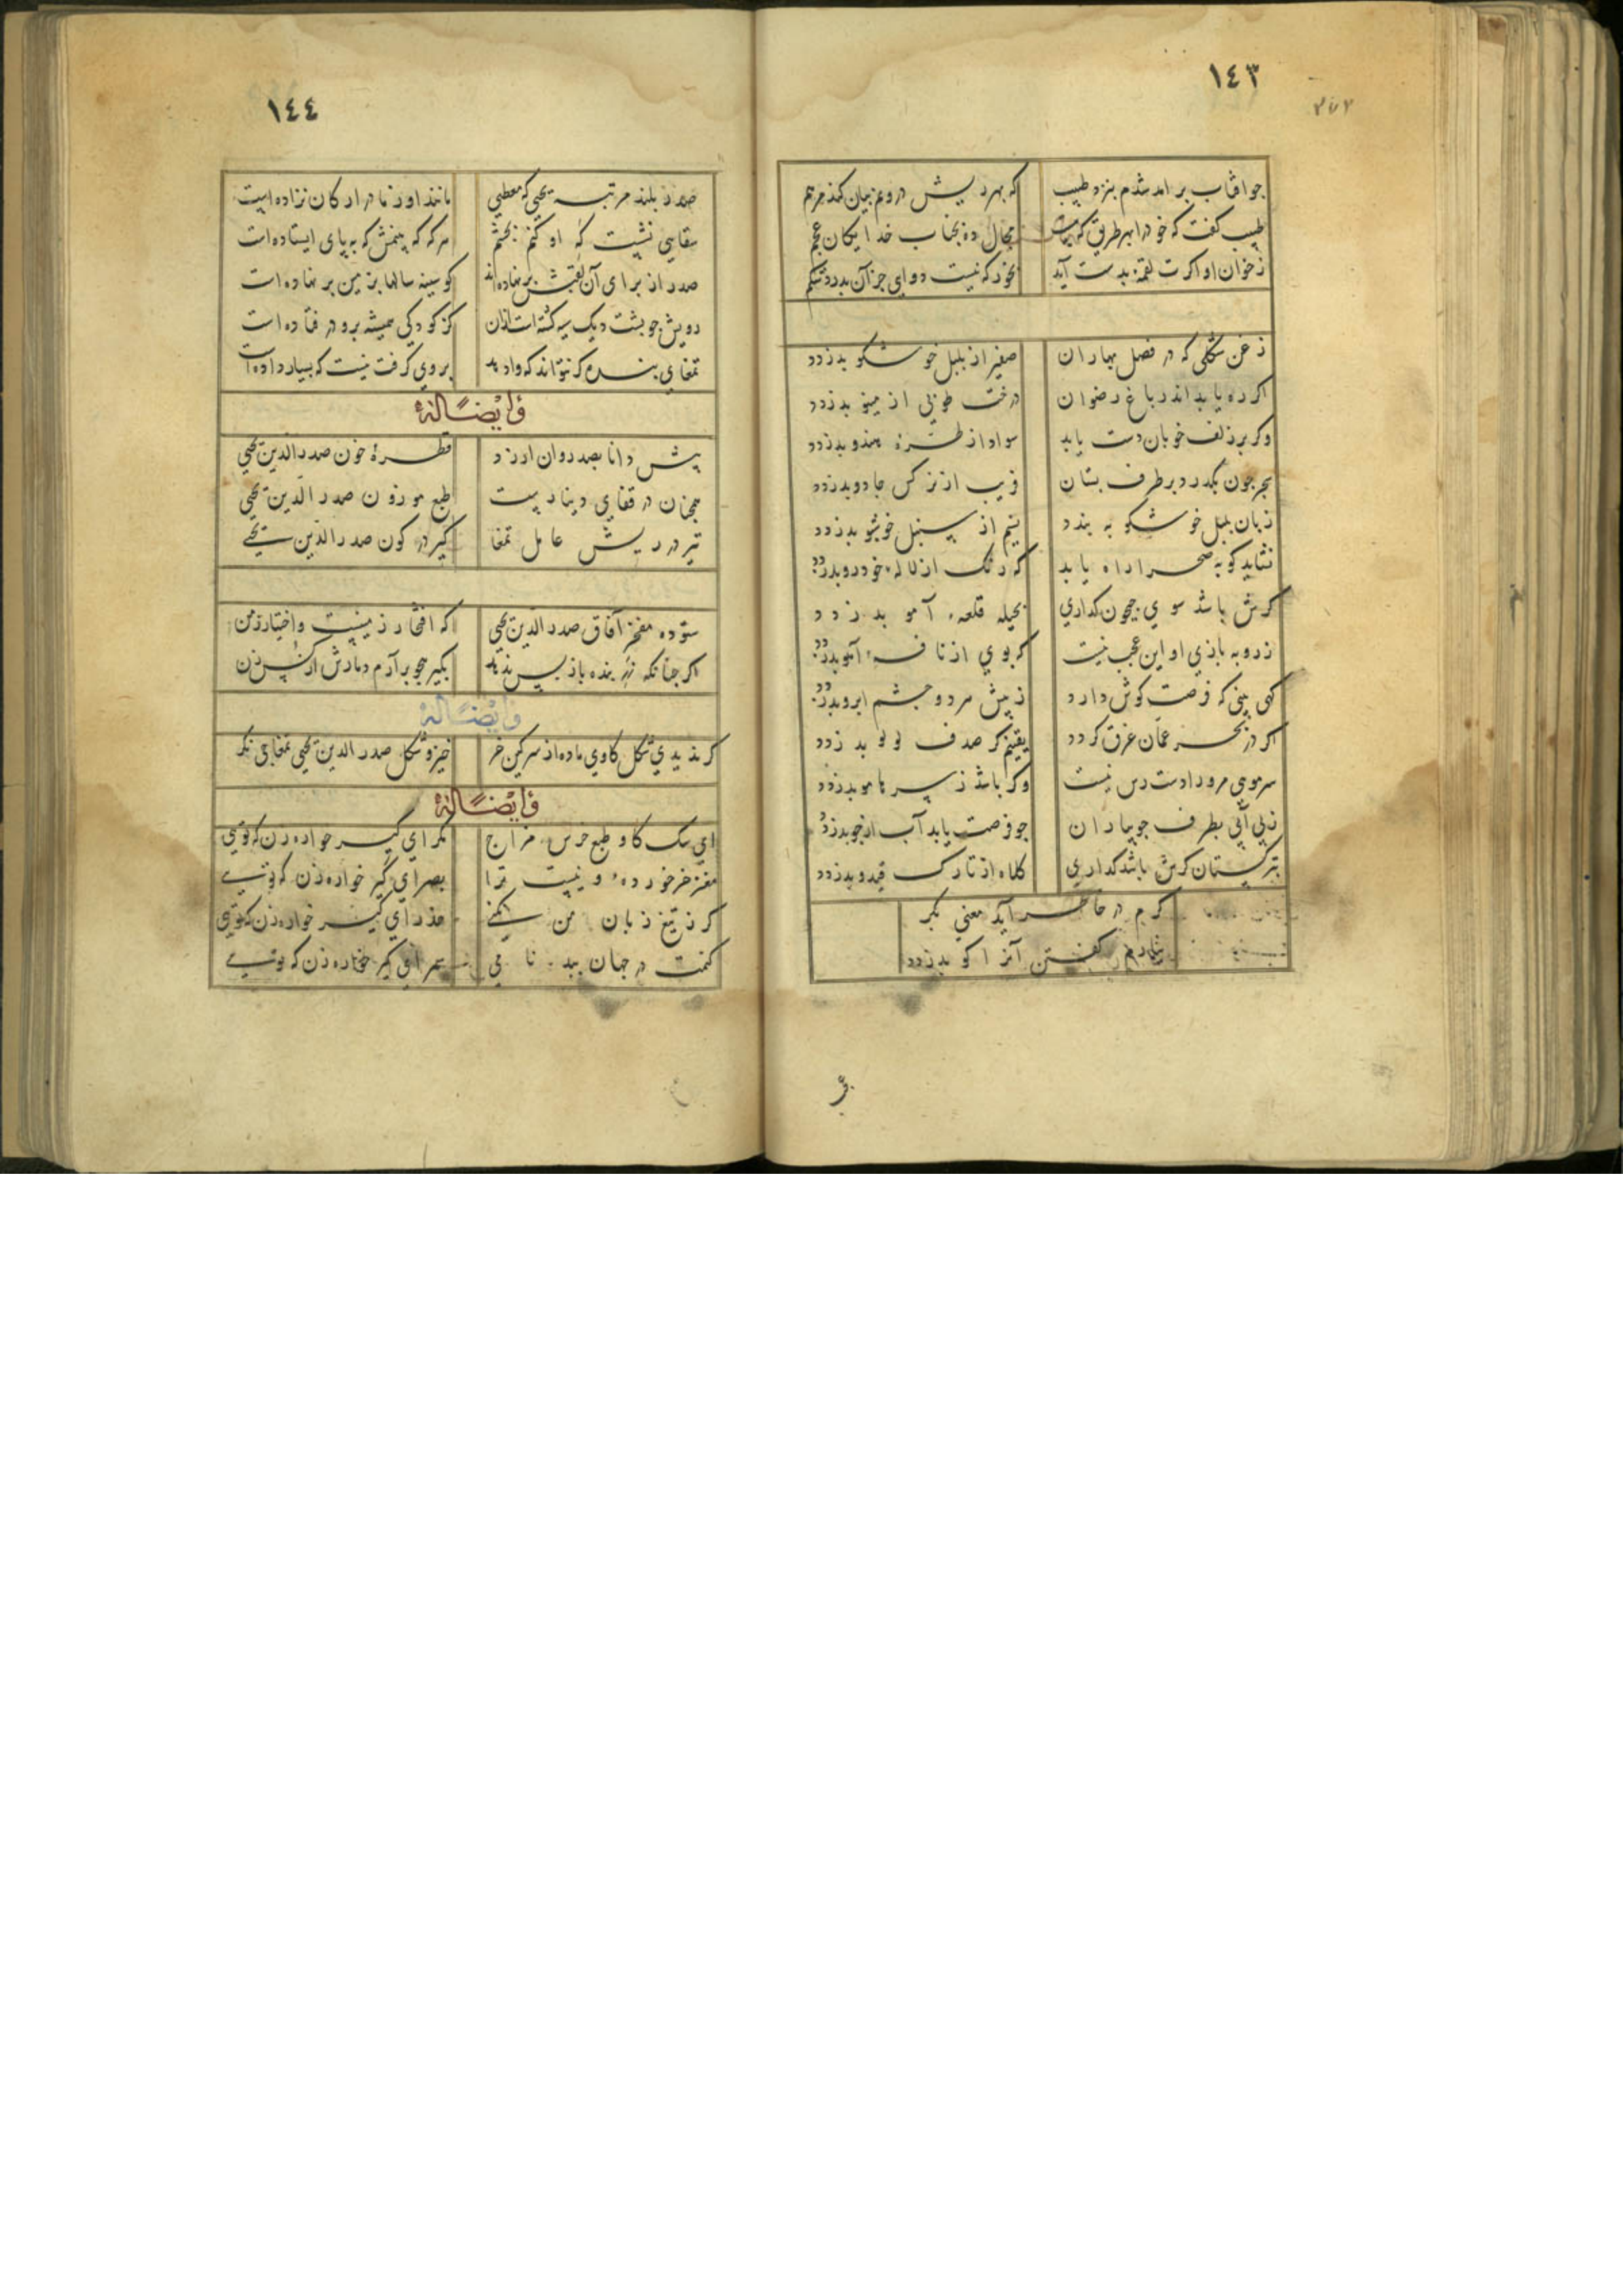 ١٤٣
چو افتاب بر امد شدم بنزد طبیب که بهر ریش درونم بیان کند مرهم
طبیب کفت که خود را بهر طریق که مجال ده بجناب خدایکان عجم
ز خوان او اکرت لقمهٔ بدست آید بخور که نیست دوای جز آن بدرد شکم
زغن شکلی که در فصل بهاران صفیر از بلبل خوشکو بدزدد
اکر ره یابد اندر باغ رضوان درخت طوبی از مینو بدزدد
وکر بر زلف خوبان دست یابد سواد از طرهٔ هندو بدزدد
سحر چون بکذرد بر طرف بستان فریب از نرکس جادو بدزدد
زبان بلبل خوشکو به بندد نسیم از سنبل خوشبو بدزدد
نشاید کو به صحرا راه یابد که رنک از لالهٔ خودرو بدزدد
کرش باشد سوی جیحون کذاری بحیله قلعهٔ آمو بدزدد
ز روبه بازی او این عجب نیست کر بوی از نافهٔ آهو بدزدد
کهی بینی که فرصت کوش دارد ز پیش هر دو چشم ابرو بدزدد
اکر در بحر عمان غرق کردد یقینم کز صدف لولو بدزدد
سر مویی مرو را دست رس نیست وکر باشد ز سرها مو بدزدد
ز بی آبی بطرف جویباران چو فرصت یابد آب از جو بدزدد
بترکستان کرش باشد کذاری کلاه از تارک قیدو بدزدد
کرم در خاطر آید معنی بکر
نیارم کفتن آنرا کو بدزدد
١٤٤
صدر بلند مرتبه یحیی که معطیی مانند او ز مادر ارکان نزاده است
مقاسی نشست که او کنم بخشم هر که که بینمش که بپای ایستاده است
صدر از برای آن لقبش بر نهاده اند کو سینه سالها بزمین بر نهاده است
رویش چو پشت دیک سیه کشته است از آن کز کودکی همیشه برو در فتاده است
تمغای بنده کر نتواند که وا دهد بر وی کرفت نیست که بسیار داده است
وَ اَیْضًا لَهُ
پیش دانا بصد روان ارزد قطرهٔ خون صدر الدین یحیی
همچنان در قفای دینار است طبع موزون صدر الدین یحیی
تیز در ریش عامل تمغا کیر در کون صدر الدین یحیی
ستوده مفخر آفاق صدر الدین یحیی که افتخار زمینست و اختیار زمن
اکر چنانکه زر بنده باز پس ندهد بکیر هجو برآرم دمارش از زن
وَ اَیْضًا لَهُ
کر ندیدی شکل کاوی ماده از سرکین خر خیز و شکل صدر الدین یحیی تمغاجی نکر
وَ اَیْضًا لَهُ
ای سک کاو طبع خرس مزاج مکر ای کیر خواره زن که تویی
مغز خر خوردهٔ و نیست ترا بصر ای کیر خواره زن که تویی
کر ز تیغ زبان من نکنی حذر ای کیر خواره زن که تویی
کنمت در جهان ببدنامی سمر ای کیر خواره زن که تویی